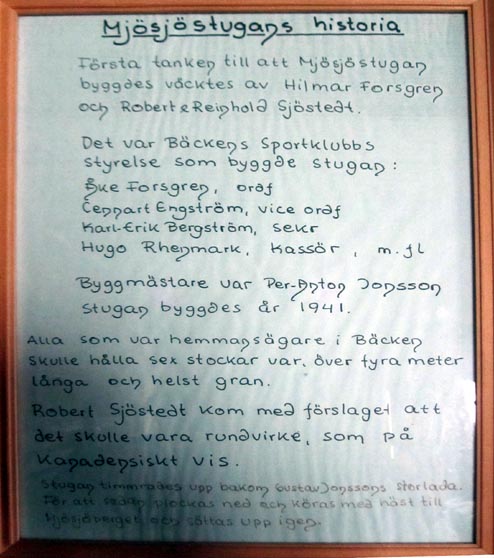 Mjösjöstugans historia
Första tanken till att Mjösjöstugan
byggdes väcktes av Hilmar Forsgren
och Robert & Reinhold Sjöstedt.
Det var Bäckens Sportklubbs
styrelse som byggde stugan:
Åke Forsgren, ordf
Lennart Engström, vice ordf
Karl-Erik Bergström, sekr
Hugo Rhenmark, kassör, m.fl
Byggmästare var Per-Anton Jonsson
Stugan byggdes år 1941.
Alla som var hemmansägare i Bäcken
skulle hålla sex stockar var, över fyra meter
långa och helst gran.
Robert Sjöstedt kom med förslaget att
det skulle vara rundvirke, som på
kanadensiskt vis.
Stugan timmrades upp bakom Gustav Jonssons storlada.
För att sedan plockas ned och köras med häst till
Mjösjöberget och sättas upp igen.